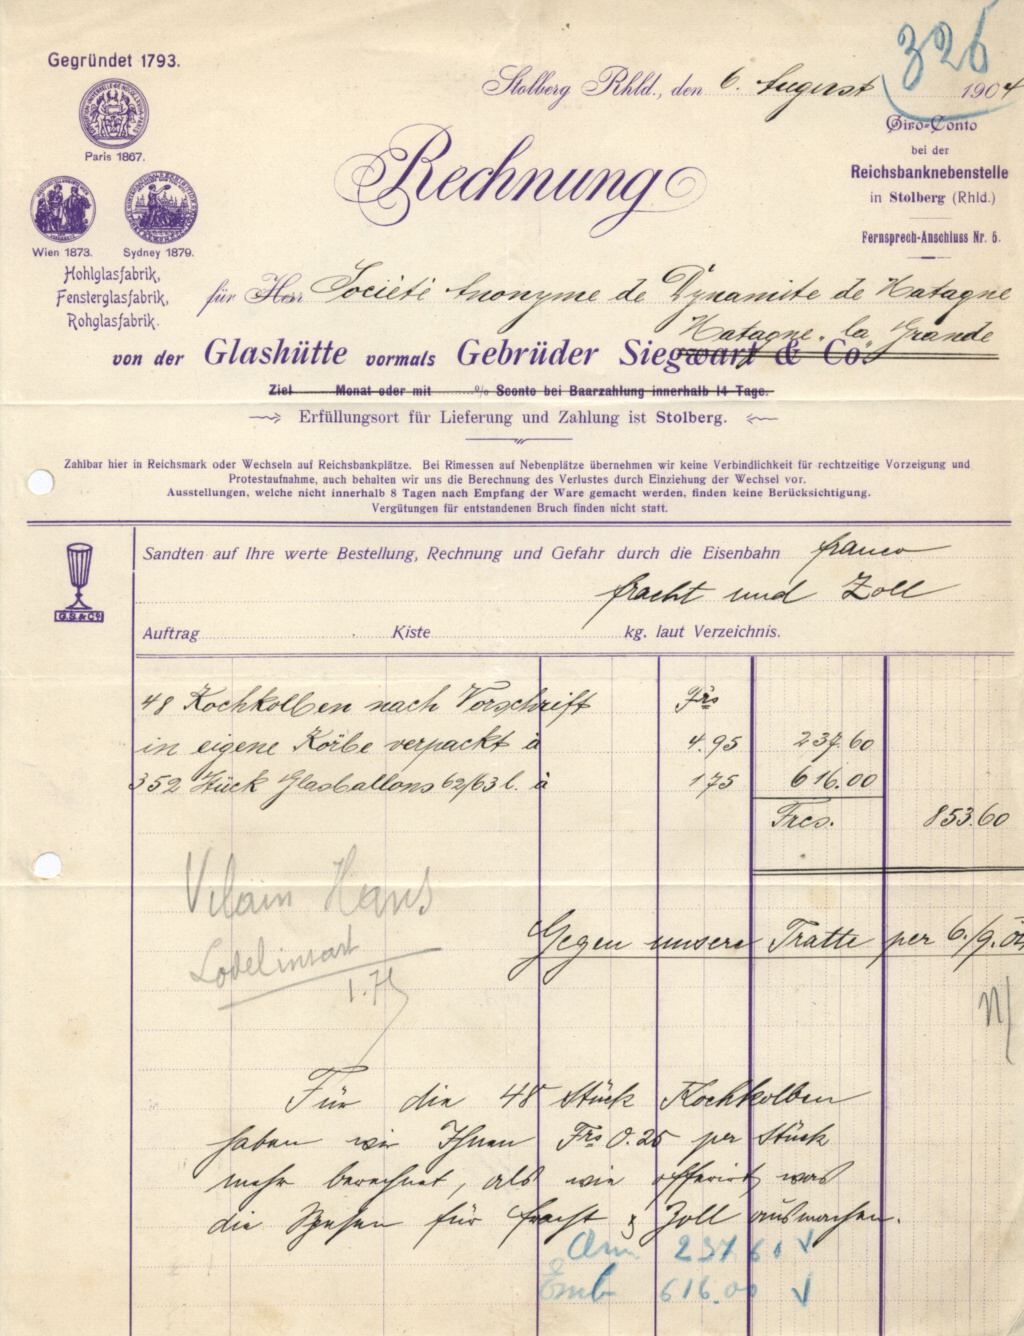 326
Gegründet 1793.
Stolberg Rhld., den 6. August 1904
Paris 1867.
Giro-Conto
bei der
Reichsbanknebenstelle
in Stolberg (Rhld.)
Fernsprech-Anschluss Nr. 5.
Rechnung
Wien 1873. Sydney 1879.
Hohlglasfabrik,
Fensterglasfabrik,
Rohglasfabrik.
für Herr Société Anonyme de Dynamite de Matagne
Matagne "la" Grande
von der Glashütte vormals Gebrüder Siegwart & Co.
Ziel Monat oder mit % Sconto bei Baarzahlung innerhalb 14 Tage.
Erfüllungsort für Lieferung und Zahlung ist Stolberg.
Zahlbar hier in Reichsmark oder Wechseln auf Reichsbankplätze. Bei Rimessen auf Nebenplätze übernehmen wir keine Verbindlichkeit für rechtzeitige Vorzeigung und
Protestaufnahme, auch behalten wir uns die Berechnung des Verlustes durch Einziehung der Wechsel vor.
Ausstellungen, welche nicht innerhalb 8 Tagen nach Empfang der Ware gemacht werden, finden keine Berücksichtigung.
Vergütungen für entstandenen Bruch finden nicht statt.
Sandten auf Ihre werte Bestellung, Rechnung und Gefahr durch die Eisenbahn franco
fracht und Zoll
G.S.& Co
Auftrag Kiste kg. laut Verzeichnis.
48 Kochkolben nach Vorschrift Frs
in eigene Körbe verpackt à 4.95 237.60
352 Stück Glasballons 62/63 l. à 175 616.00
Frcs. 853.60
Vilain Hans
Lodelinsart
1.75
Gegen unsere Tratte per 6./9.04
N/
Für die 48 Stück Kochkolben
haben wir Ihnen Frs 0.25 per Stück
mehr berechnet, als wie offerirt, was
die Spesen für fracht & Zoll ausmachen.
237 60
Emb 616.00